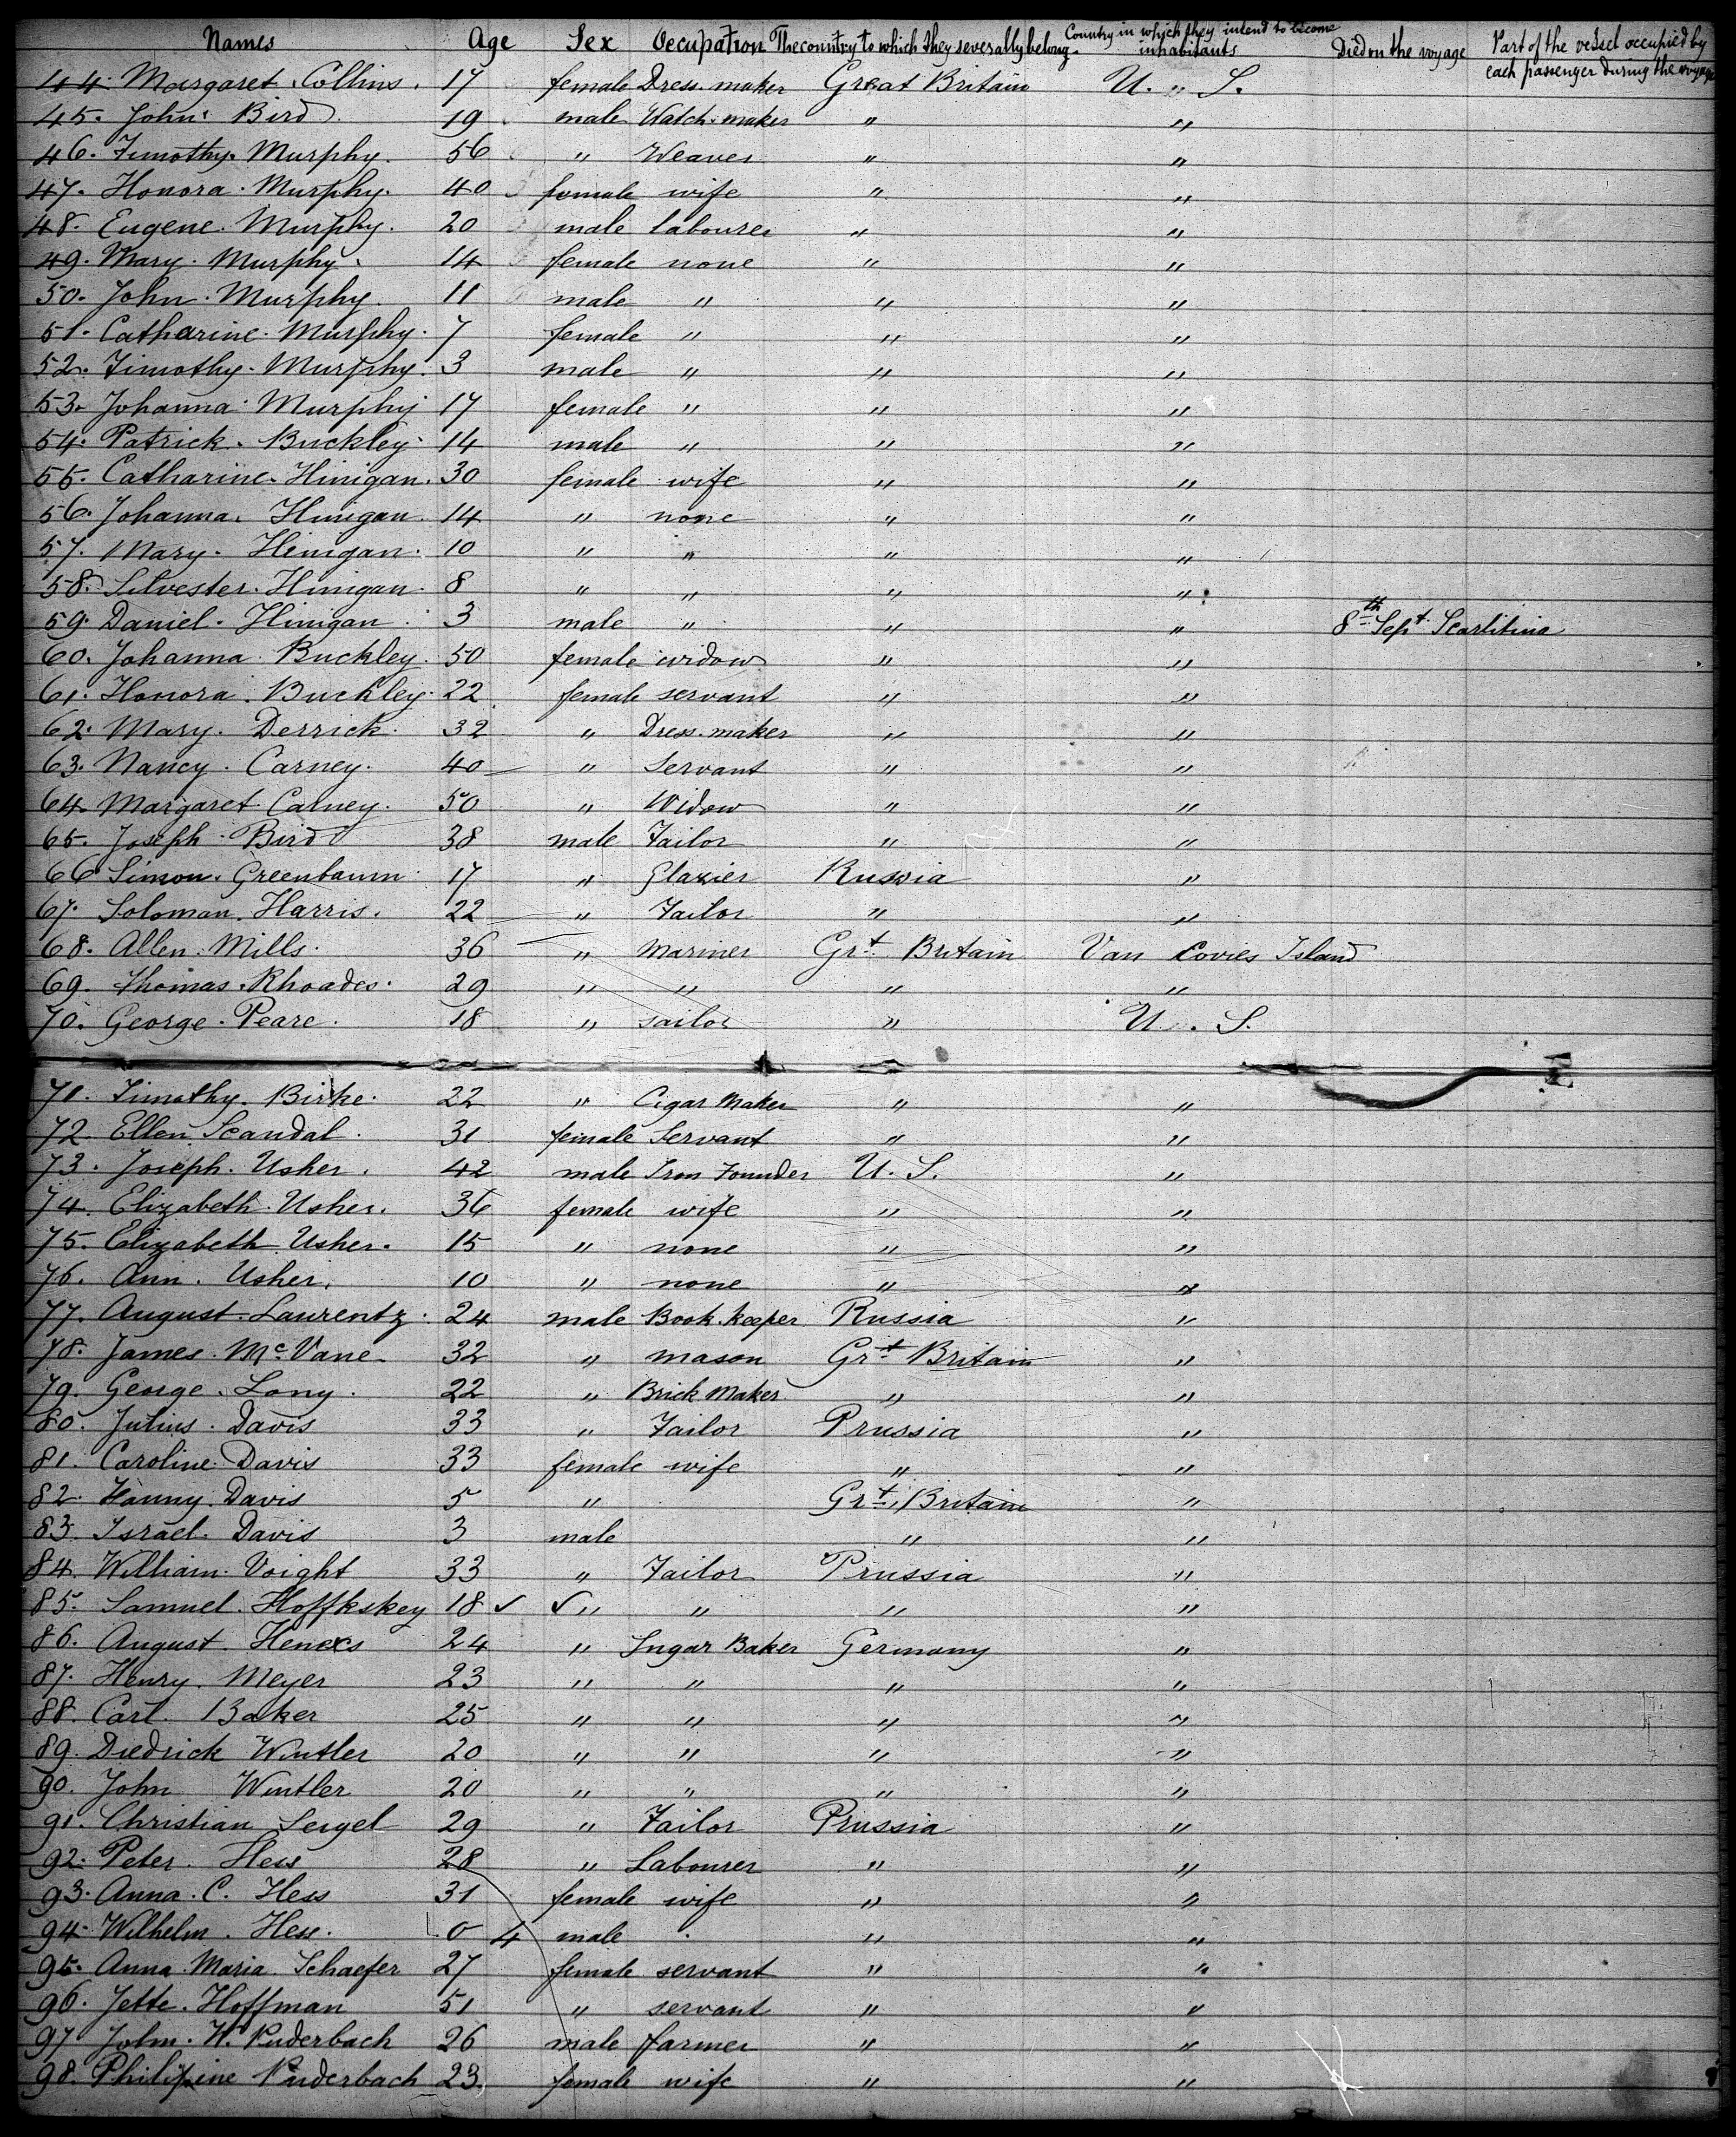 Names Age Sex Occupation The country to which they severally belong. Country in which they intend to become inhabitants Died on the voyage Part of the vessel occupied by each passenger during the voyage
44. Margaret Collins. 17 female Dress maker Great Britain U. " S.
45. John Bird 19 male Watch maker " "
46. Timothy Murphy. 56 " Weaver " "
47. Honora Murphy. 40 female wife " "
48. Eugene Murphy. 20 male labourer " "
49. Mary Murphy. 14 female none " "
50. John Murphy. 11 male " " "
51. Catharine Murphy. 7 female " " "
52. Timothy Murphy. 3 male " " "
53. Johanna Murphy 17 female " " "
54. Patrick Buckley 14 male " " "
55. Catharine Hinigan. 30 female wife " "
56. Johanna Hinigan 14 " none " "
57. Mary Hinigan. 10 " " " "
58. Silvester Hinigan. 8 " " " "
59. Daniel Hinigan 3 male " " " 8th Sept. Scarlitina
60. Johanna Buckley. 50 female widow " "
61. Honora Buckley. 22 female servant " "
62. Mary Derrick. 32 " Dress maker " "
63. Nancy Carney. 40 " Servant " "
64. Margaret Carney. 50 " Widow " "
65. Joseph Bird 38 male Tailor " "
66 Simon Greenbaum 17 " Glazier Russia "
67. Soloman Harris. 22 " Tailor " "
68. Allen Mills. 36 " Mariner Grt. Britain Van Covies Island
69. Thomas Rhoades. 29 " " " "
70. George Peare. 18 " sailor " U. S.
71. Timothy Birke. 22 " Cigar Maker " "
72. Ellen Scandal. 31 female Servant " "
73. Joseph Usher. 42 male Iron Founder U. S. "
74. Elizabeth Usher. 36 female wife " "
75. Elizabeth Usher. 15 " none " "
76. Ann Usher. 10 " none " "
77. August Laurentz. 24 male Book keeper Russia "
78. James McVane 32 " mason Grt. Britain "
79. George Long. 22 " Brick Maker " "
80. Julius Davis 33 " Tailor Prussia "
81. Caroline Davis 33 female wife " "
82. Fanny Davis 5 " Grt. Britain "
83. Israel Davis 3 male " "
84. William Voight 33 " Tailor Prussia "
85. Samuel Hoffkskey 18 ✓ ✓ " " " "
86. August Henexs 24 " Sugar Baker Germany "
87. Henry Meyer 23 " " " "
88. Carl Baker 25 " " " "
89. Diedrick Wintler 20 " " " "
90. John Wintler 20 " " " "
91. Christian Seigel 29 " Tailor Prussia "
92. Peter Hess 28 " Labourer " "
93. Anna C. Hess 31 female wife " "
94. Wilhelm Hess. 0 4 male " "
95. Anna Maria Schaefer 27 female servant " "
96. Jette Hoffman 51 " servant " "
97 John W. Puderbach 26 male farmer " "
98. Philipine Puderbach 23. female wife " "